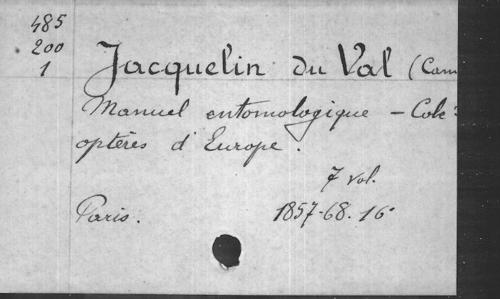 485
200
1
Jacquelin du Val (Cam
Manuel entomologique - Colé=
optères d'Europe.
7 vol.
Paris. 1857-68. 16°